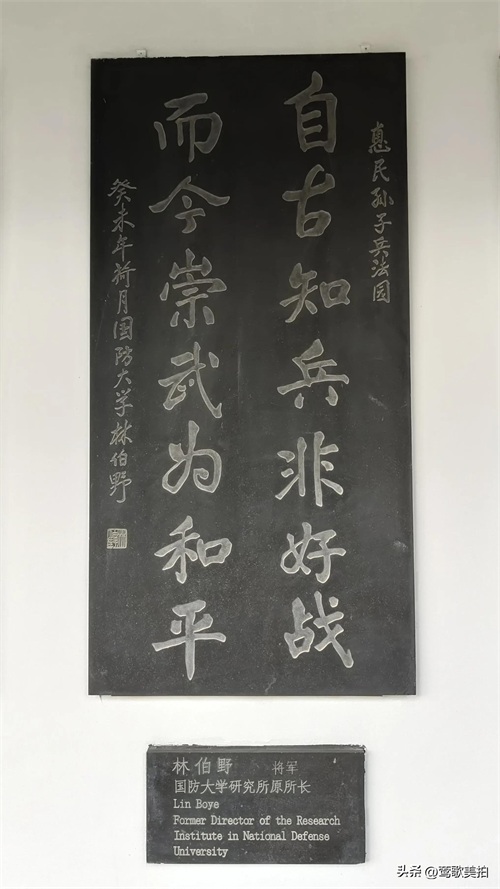 惠民孙子兵法园
自古知兵非好战
而今崇武为和平
癸未年荷月国防大学林伯野
林伯野 将军
国防大学研究所原所长
Lin Boye
Former Director of the Research
Institute in National Defense
University
头条 @莺歌美拍